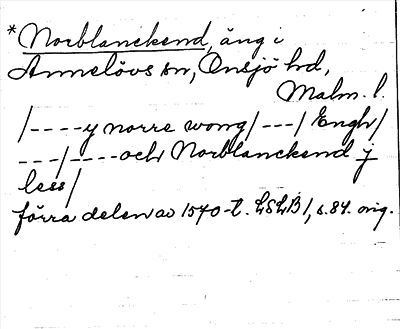 *Norblanckend, äng i
Annelövs sn, Onsjö hd,
Malm. l.
/----y norre wong/---/Engh/
---/----och Norblanckend j
less/
förra delen av 1570-t. LSLB 1, s.84. orig.